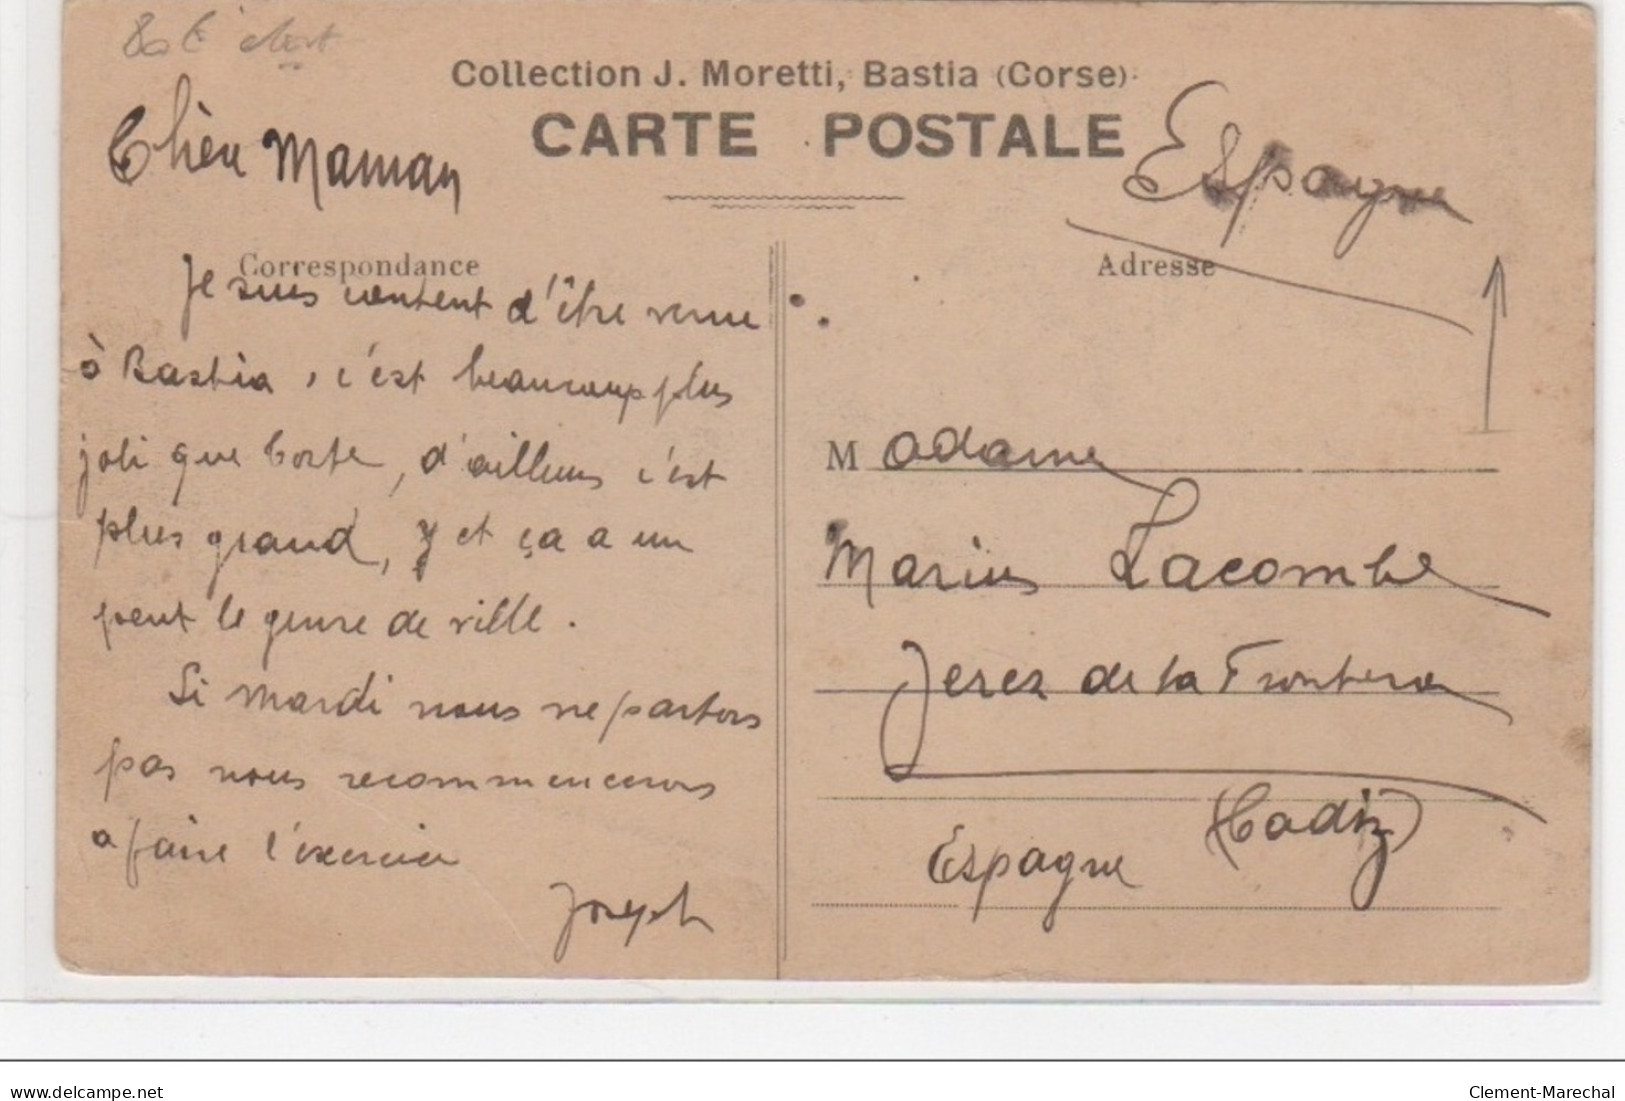 Collection J. Moretti, Bastia (Corse)
CARTE POSTALE
Espagne
Chère Maman
Correspondance
Adresse
Je suis content d'être venu
à Bastia, c'est beaucoup plus
joli que Corte, d'ailleurs c'est
plus grand, y et ça a un
peut le genre de ville.
Si mardi nous ne partons
pas nous recommencerons
a faire l'exercice
Joseph
Madame
Marius Lacombe
Jerez de la Frontera
(Cadiz)
Espagne
www.delcampe.net
Clement-Marechal